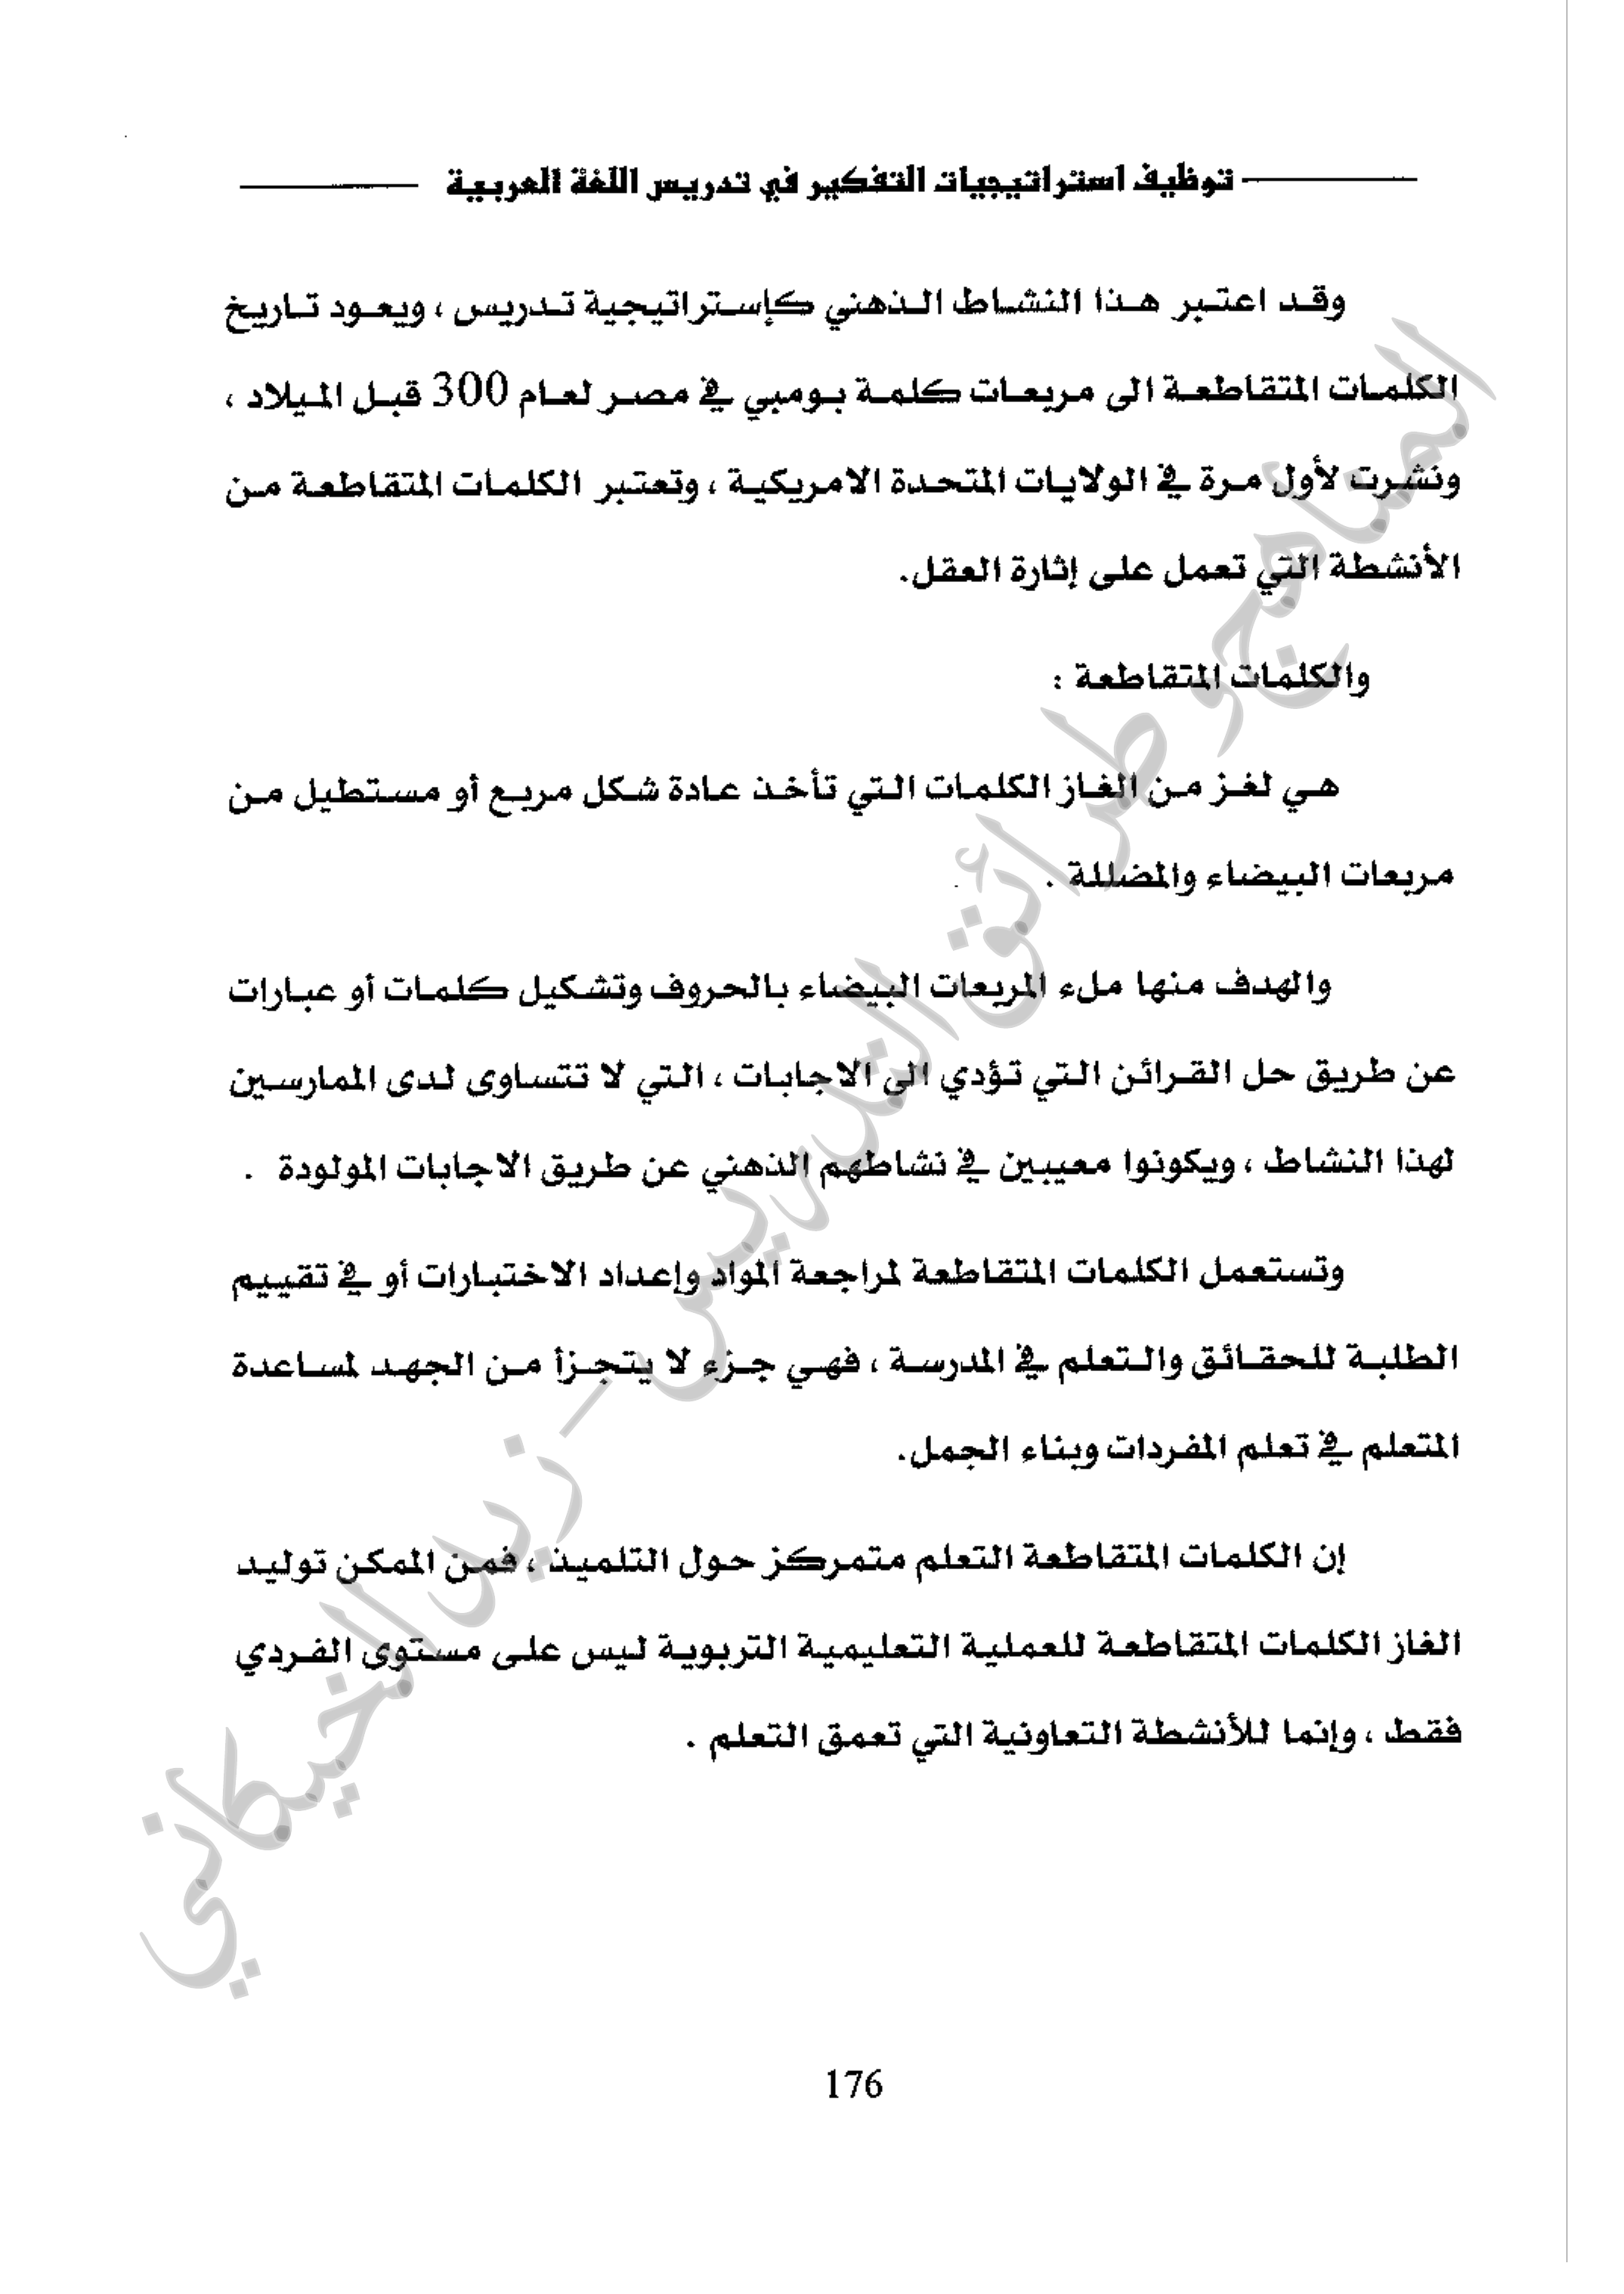 توظيف استراتيجيات التفكير في تدريس اللغة العربية
وقد اعتبر هذا النشاط الذهني كإستراتيجية تدريس ، ويعود تاريخ
الكلمات المتقاطعة الى مربعات كلمة بومبي في مصر لعام 300 قبل الميلاد ،
ونشرت لأول مرة في الولايات المتحدة الامريكية ، وتعتبر الكلمات المتقاطعة من
الأنشطة التي تعمل على إثارة العقل.
والكلمات المتقاطعة :
هي لغز من الغاز الكلمات التي تأخذ عادة شكل مربع أو مستطيل من
مربعات البيضاء والمضللة .
والهدف منها ملء المربعات البيضاء بالحروف وتشكيل كلمات أو عبارات
عن طريق حل القرائن التي تؤدي الى الاجابات ، التي لا تتساوى لدى الممارسين
لهذا النشاط ، ويكونوا معيبين في نشاطهم الذهني عن طريق الاجابات المولودة .
وتستعمل الكلمات المتقاطعة لمراجعة المواد وإعداد الاختبارات أو في تقييم
الطلبة للحقائق والتعلم في المدرسة ، فهي جزء لا يتجزأ من الجهد لمساعدة
المتعلم في تعلم المفردات وبناء الجمل.
إن الكلمات المتقاطعة التعلم متمركز حول التلميذ ، فمن الممكن توليد
الغاز الكلمات المتقاطعة للعملية التعليمية التربوية ليس على مستوى الفردي
فقط ، وإنما للأنشطة التعاونية التي تعمق التعلم .
المناهج وطرائق التدريس - زيد الخيكاني
176